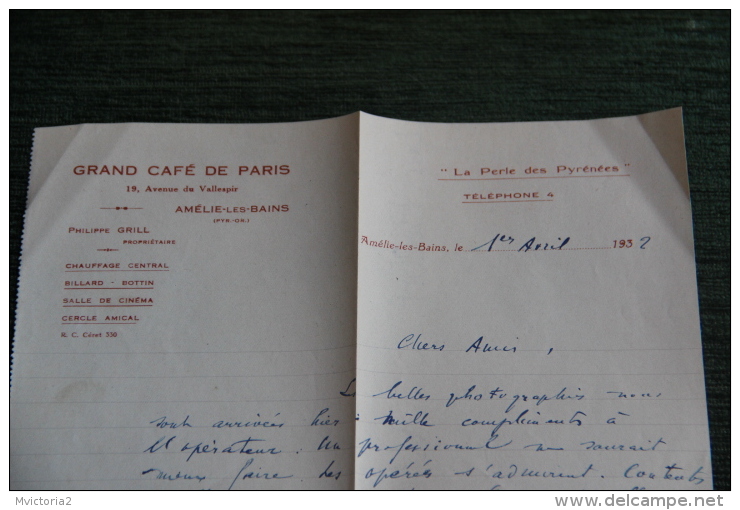 GRAND CAFÉ DE PARIS
19, Avenue du Vallespir
AMÉLIE-LES-BAINS
(PYR.-OR.)
PHILIPPE GRILL
PROPRIÉTAIRE
CHAUFFAGE CENTRAL
BILLARD - BOTTIN
SALLE DE CINÉMA
CERCLE AMICAL
R. C. Céret 330
" La Perle des Pyrénées "
TÉLÉPHONE 4
Amélie-les-Bains, le 1er Avril 1932
Chers Amis,
Les belles photographies nous
sont arrivées hier : Mille compliments à
l'opérateur : Un professionnel ne saurait
mieux faire. Les opérés s'admirent. Contents
Mvictoria2
www.delcampe.net